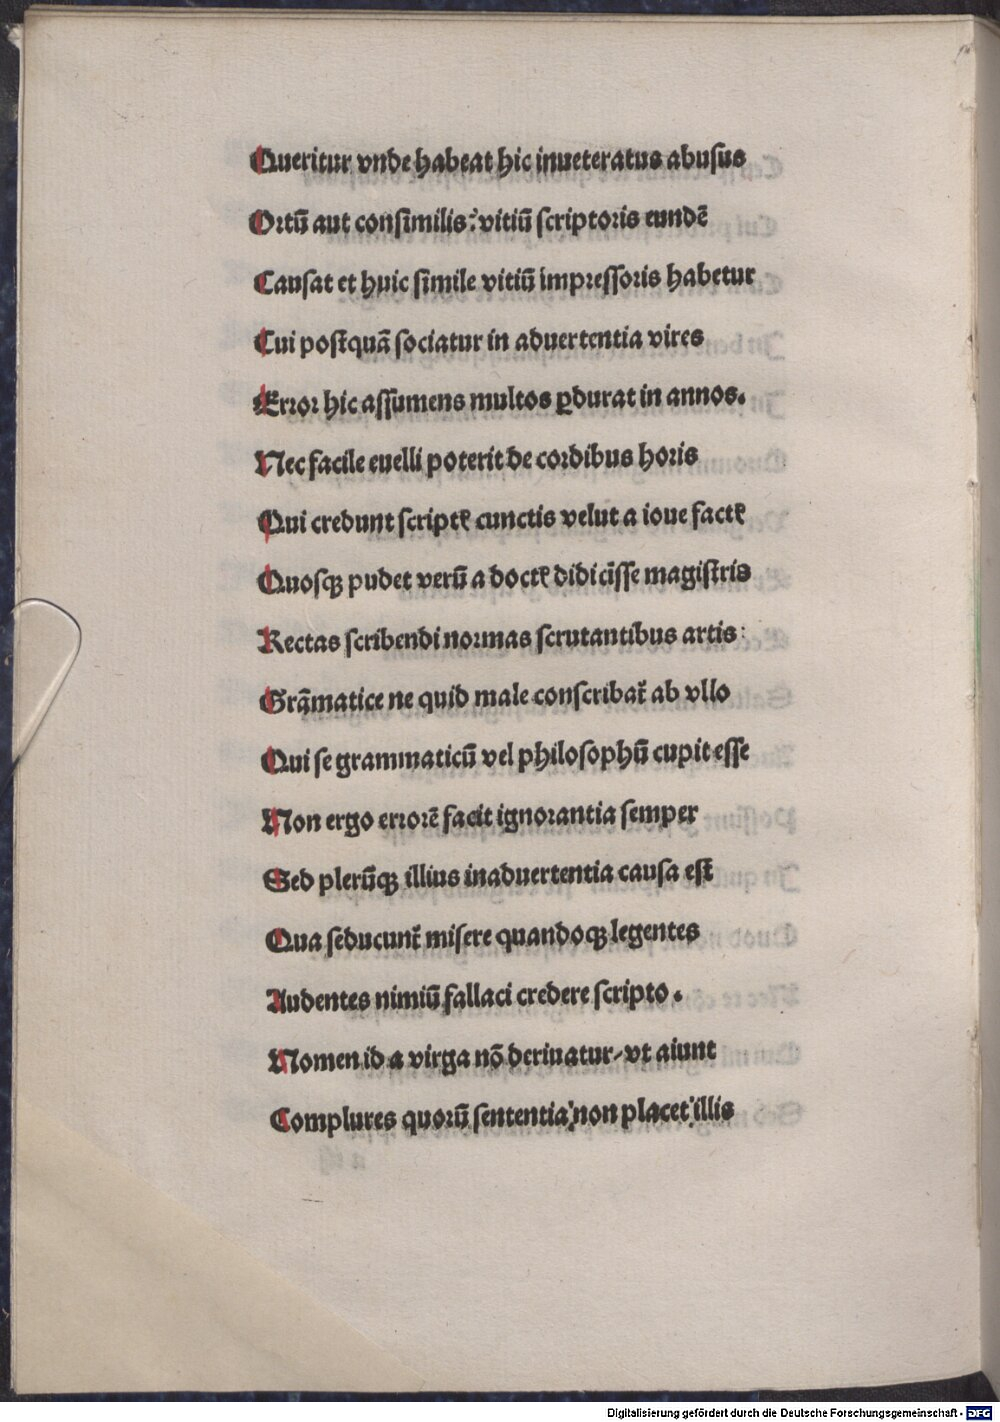 Queritur vnde habeat hic inueteratus abuſus
Ortū aut conſimilis: vitiū ſcriptoris eundē
Cauſat et huic ſimile vitiū impreſſoris habetur
Cui poſtquā ſociatur in aduertentia vires
Error hic aſſumens multos ꝑdurat in annos.
Nec facile euelli poterit de cordibus horis
Qui credunt ſcriptꝭ cunctis velut a ioue factꝭ
Quoſqꝫ pudet verū a doctꝭ didiciſſe magiſtris
Rectas ſcribendi normas ſcrutantibus artis:
Grāmatice ne quid male conſcribat᷑ ab vllo
Qui ſe grammaticū vel philoſophū cupit eſſe
Non ergo errorē facit ignorantia ſemper
Sed plerūqꝫ illius inaduertentia cauſa eſt
Qua ſeducunt᷑ miſere quandoqꝫ legentes
Audentes nimiū fallaci credere ſcripto.
Nomen id a virga nō deriuatur/vt aiunt
Complures quorū ſententia: non placet: illis
Digitalisierung gefördert durch die Deutsche Forschungsgemeinschaft - DFG